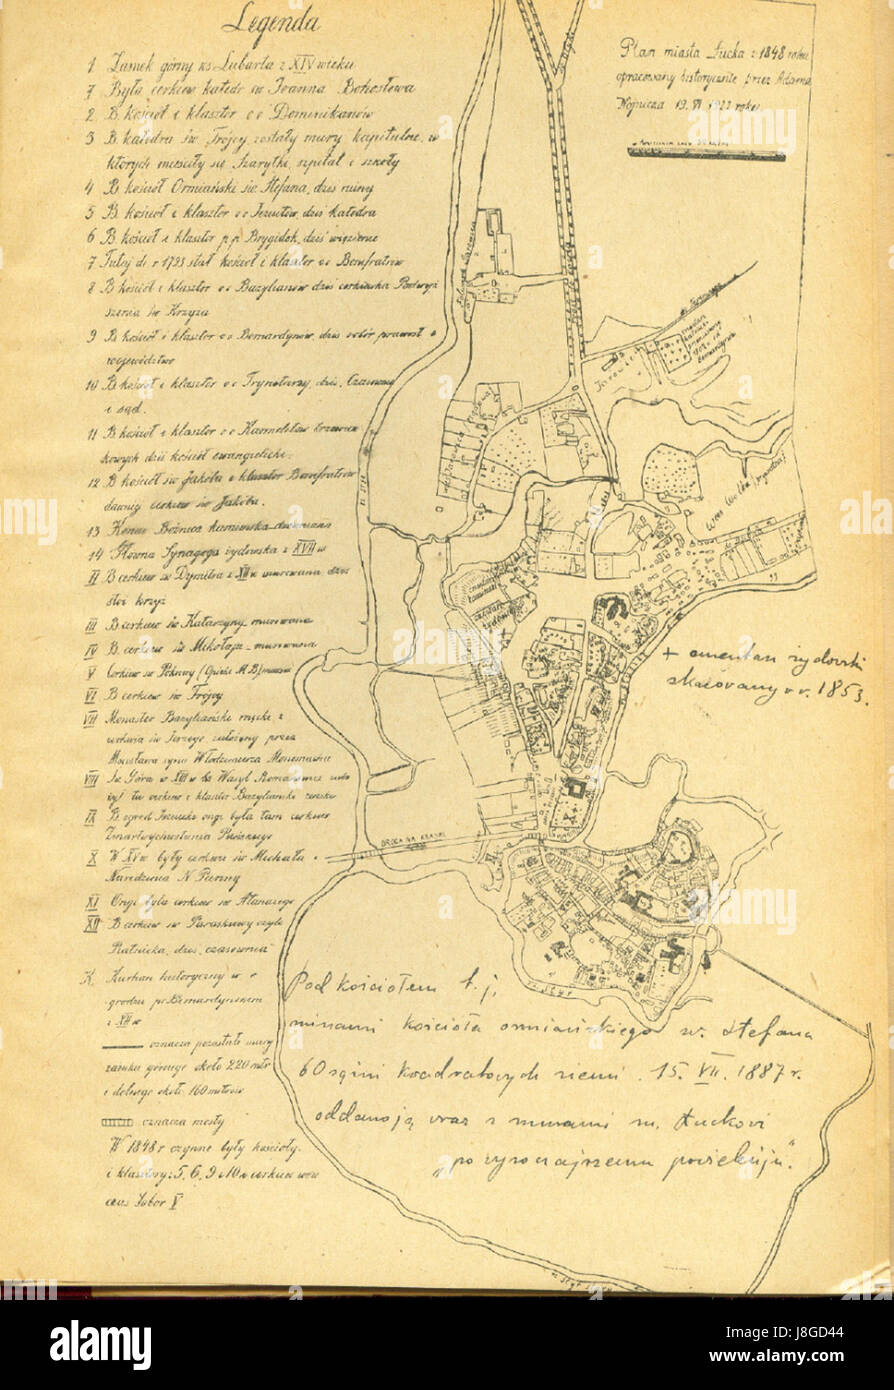 Legenda
1 Zamek górny ks Lubarta z XIV wieku
7 Była cerkiew katedr św Joanna Bohosłowa
2 B. kościół i klasztor o o Dominikanów
3 B katedra św Trójcy, zostały mury kapitulne, w
których mieściły się Szarytki, szpital i szkoły
4 B kościół Ormiański św. Stefana, dziś ruiny
5 B kościół i klasztor o o Jezuitów, dziś katedra
6 B. kościół i klasztor p p Brygidek, dziś więzienie
7 Tutaj do r 1793 stał kościół i klasztor o o Bonifratrów
8 B kościół i klasztor o o Bazylianów dziś cerkiewka Podwyż
szenia św Krzyża
9 B kościół i klasztor o o Bernardynów, dziś sobór prawosł i
województwo
10 B kościół i klasztor o o Trynitarzy, dziś,
i sąd.
11 B kościół i klasztor o o Karmelitów trzewicz
kowych dziś kościół ewangielicki.
12 B kościół św Jakóba i klasztor Bonifratrów
dawniej cerkiew św Jakóba.
13 Bożnica karaimska
14 Główna Synagoga żydowska z XVII w
II B cerkiew św Dymitra z w murowana dziś
stoi krzyż
III B cerkiew św Katarzyny murowana
IV B. cerkiew św Mikołaja - murowana
V Cerkiew św Pokrowy (Opieki M. B)
VI B cerkiew św Trójcy
VII Monaster Bazyliański męski z
cerkwią św Jerzego założony przez
Mścisława syna Włodzimierza Monomacha
VIII Św. Góra w XIII w ks Wasyl Romanowicz zało
żył tu cerkiew i klasztor Bazyliański żeński
IX B ogród Jezuicki ongi była tam cerkiew
Zmartwychwstania Pańskiego
X W XV w były cerkwie św Michała i
Narodzenia N Panny
XI Ongi była cerkiew św Atanazego
XII B cerkiew św Paraskiewy czyli
Piatnicka, dziś „czasownia"
K Kurhan historyczny w o
grodzie po Bernardyńskim
z XII w
oznacza pozostałe mury
zamku górnego około 220 mtr
i dolnego około 160 metrów
oznacza mosty
W 1848 r czynne były kościoły
i klasztory: 5, 6, 9 i 10 a cerkiew wów
czas Sobór V
Plan miasta Łucka z 1848 roku
opracowany historycznie przez Adama
Wojnicza 19. VI 1922 roku
DROGA NA KRASNE
+ cmentarz żydowski
skasowany w r. 1853.
Pod kościołem t. j.
murami kościoła ormiańskiego św. Stefana
60 sążni kwadratowych ziemi. 15. VII. 1887 r.
oddano ją wraz z murami m. Łuckowi
R. Styr
alamy
Image ID: J8GD44
www.alamy.com